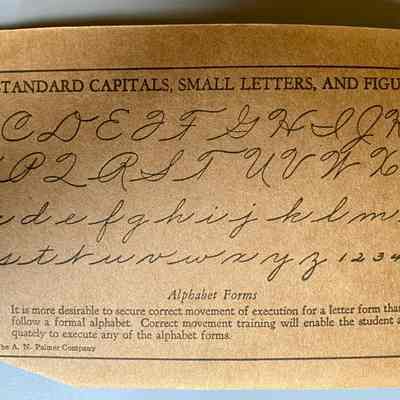 STANDARD CAPITALS, SMALL LETTERS, AND FIGU
C D E F F G H I J K
P Q R S T U V W X
c d e f g h i j k l m
s t t u v w x y z z 1 2 3 4
Alphabet Forms
It is more desirable to secure correct movement of execution for a letter form than
follow a formal alphabet. Correct movement training will enable the student a
quately to execute any of the alphabet forms.
The A. N. Palmer Company